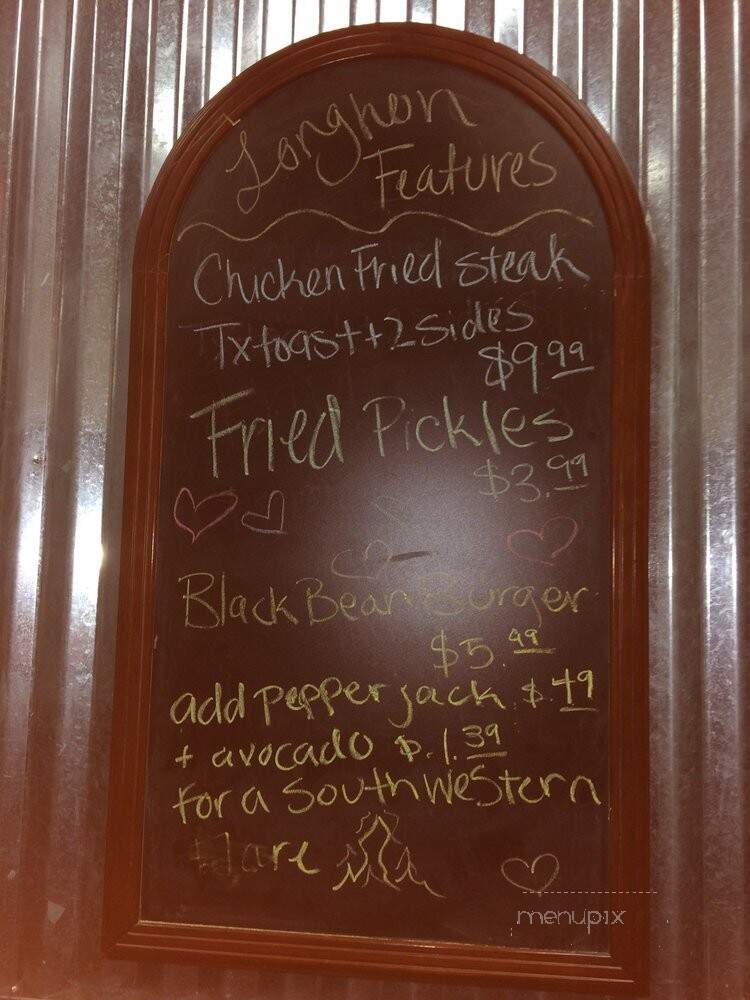 Longhorn
Features
Chicken Fried Steak
Tx toast + 2 sides
$9.99
Fried Pickles
$3.99
Black Bean Burger
$5.99
add pepper jack $.49
+ avocado $.1.39
for a Southwestern
flare
menupix